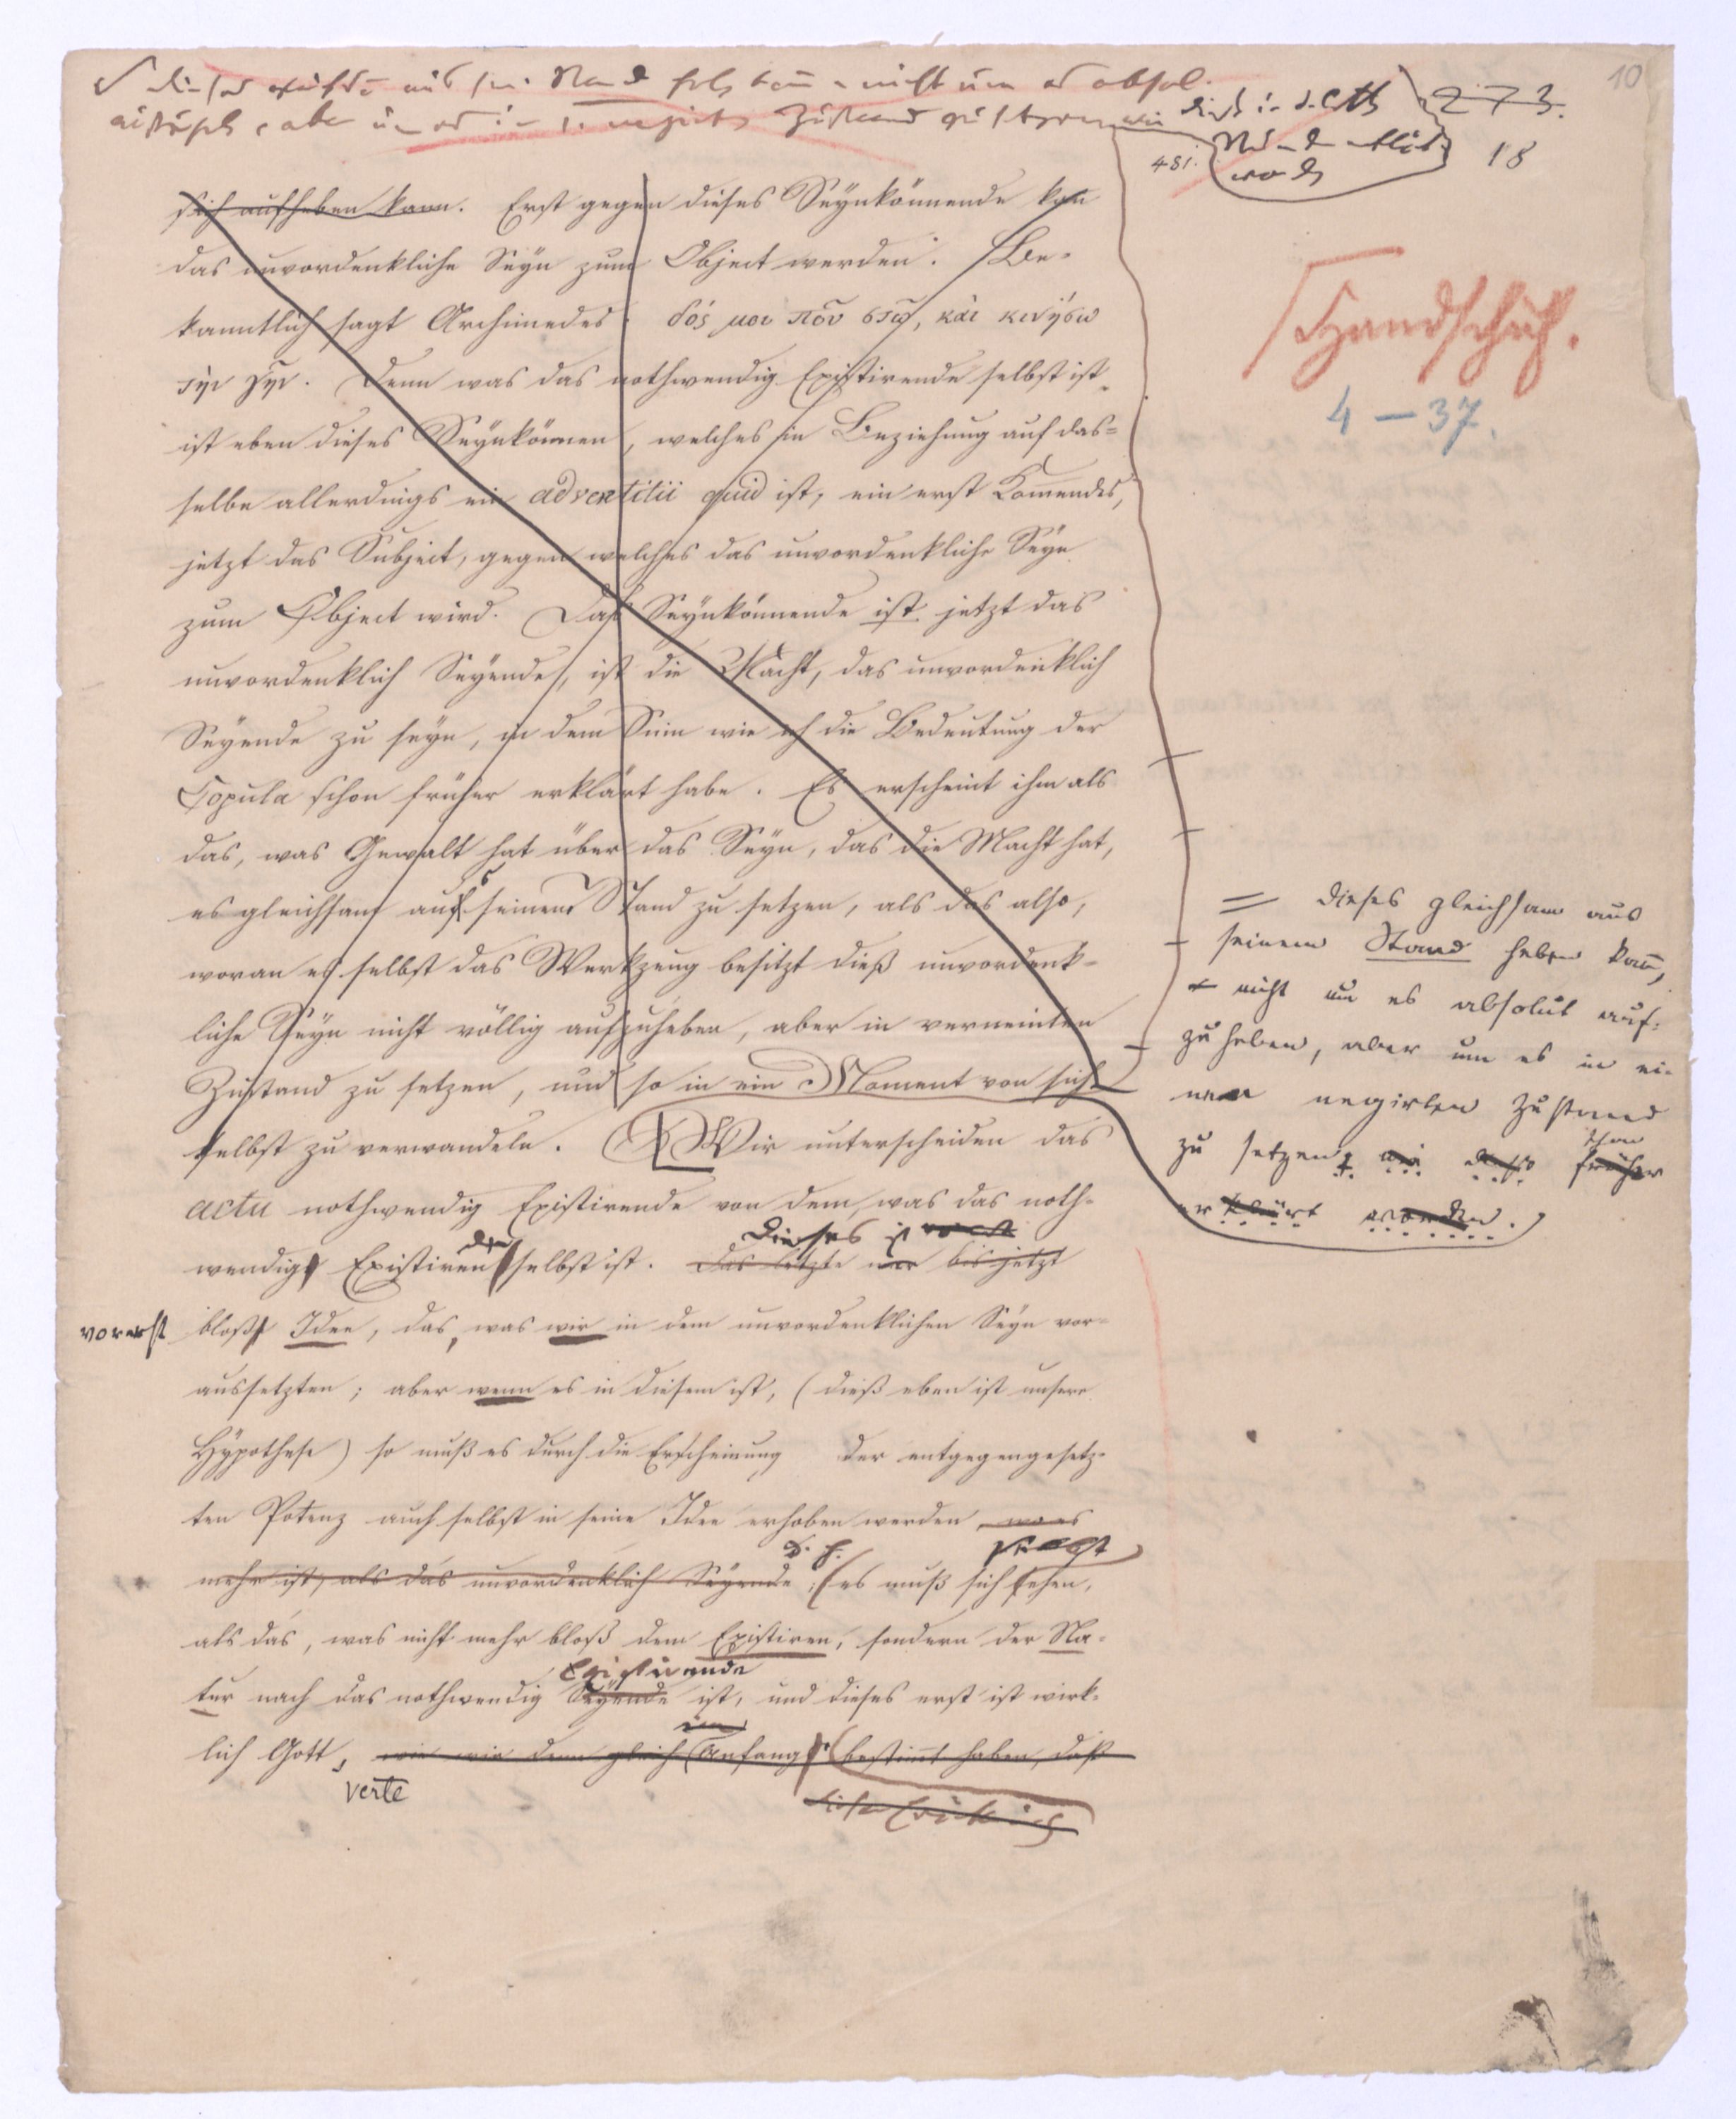 10
273.
18
481.
Handschuh.
4 — 37.
sich aufheben kann. Erst gegen dieses Seynkönnende kan
das unvordenkliche Seyn zum Object werden. Be-
kanntlich sagt Archimedes: δός μοι ποῦ στῶ, καὶ κινήσω
τὴν γῆν. Denn was das nothwendig Existirende selbst ist,
ist eben dieses Seynkönnen, welches in Beziehung auf das-
selbe allerdings ein adventitii quid ist, ein erst Kom̄endes,
jetzt das Subject, gegen welches das unvordenkliche Seyn
zum Object wird. Daß Seynkönnende ist jetzt das
unvordenklich Seyende, ist die Macht, das unvordenklich
Seyende zu seyn, in dem Sinn wie ich die Bedeutung der
Copula schon früher erklärt habe. Es erscheint ihm als
das, was Gewalt hat über das Seyn, das die Macht hat,
es gleichsam aus seinem Stand zu setzen, als das also,
woran es selbst das Werkzeug besitzt dieß unvordenk-
liche Seyn nicht völlig aufzuheben, aber in verneinten
Zustand zu setzen, und so in ein Moment von sich
selbst zu verwandeln. Wir unterscheiden das
actu nothwendig Existirende von dem, was das noth-
dieses ist
wendig Existirende selbst ist. Das letzte war bis jetzt
vorerst bloße Idee, das, was wir in dem unvordenklichen Seyn vor-
aussetzten; aber wenn es in diesem ist, (dieß eben ist unsere
Hÿpothese) so muß es durch die Erscheinung der entgegengesetz-
ten Potenz auch selbst in seine Idee erhoben werden, was
d. h.
mehr ist, als das unvordenklich Seyende; (es muß sich sehen,
als das, was nicht mehr bloß dem Existiren, sondern der Na-
Existirende
tur nach das nothwendig Seyende ist, und dieses erst ist wirk-
im
lich Gott, wie wir denn gleich Anfangs bestimmt haben, daß
verte
= dieses gleichsam aus
seinem Stand heben kan̄,
nicht um es absolut auf-
zuheben, aber um es in ei-
nen negirten Zustand
schon
zu setzen, wie dieß früher
erklärt worden.)